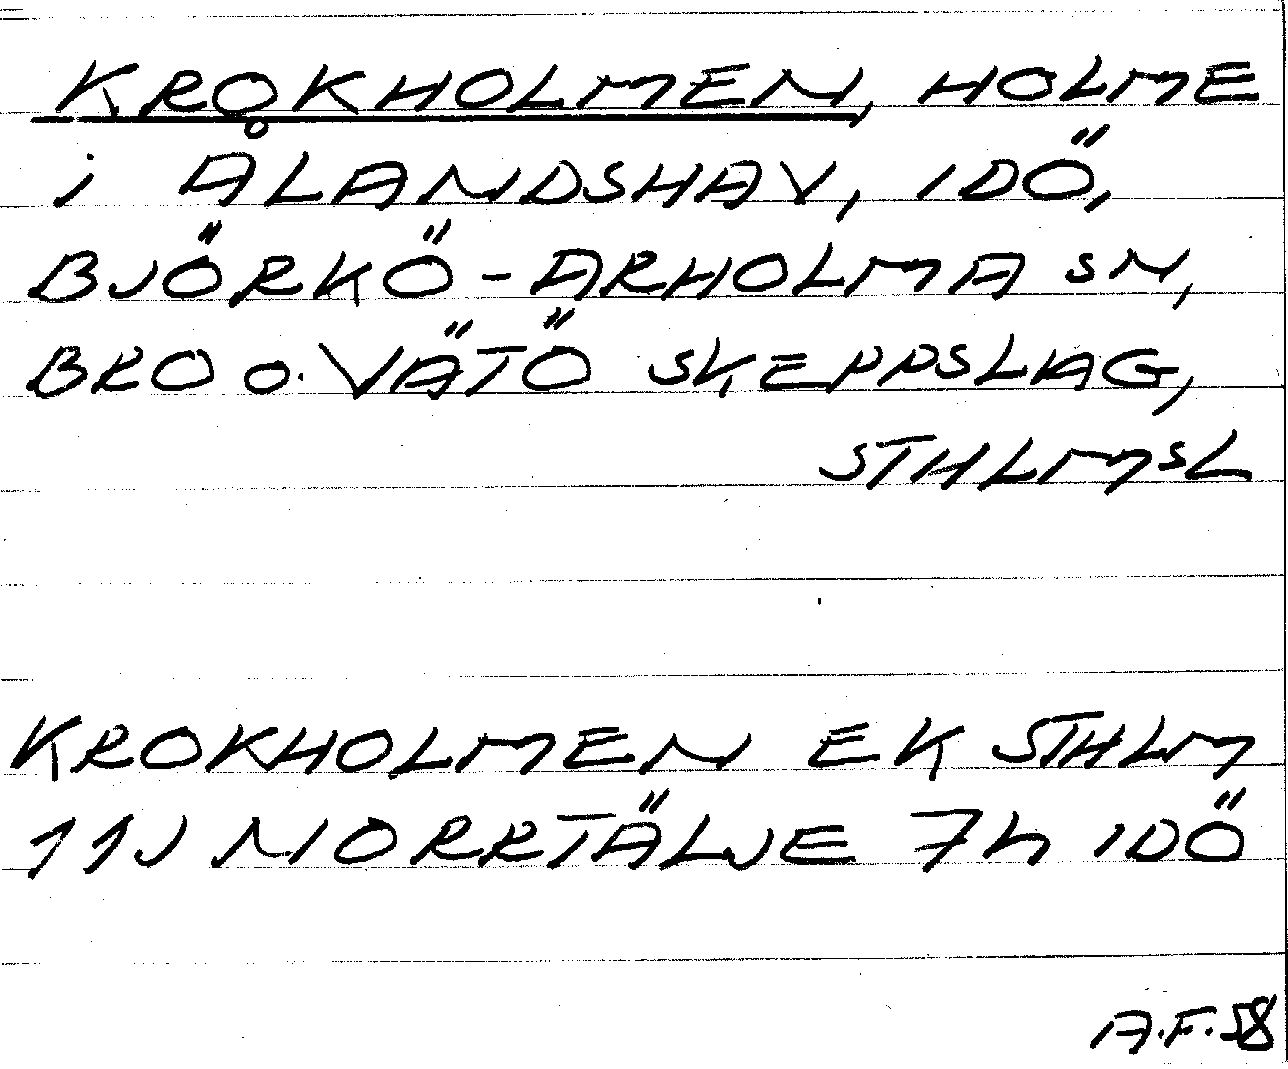 KROKHOLMEN, HOLME
i ÅLANDSHAV, IDÖ,
BJÖRKÖ-ARHOLMA SN,
BRO o. VÄTÖ SKEPPSLAG,
STHLMSL
KROKHOLMEN EK STHLM
11J NORRTÄLJE 7h IDÖ
A.F.58